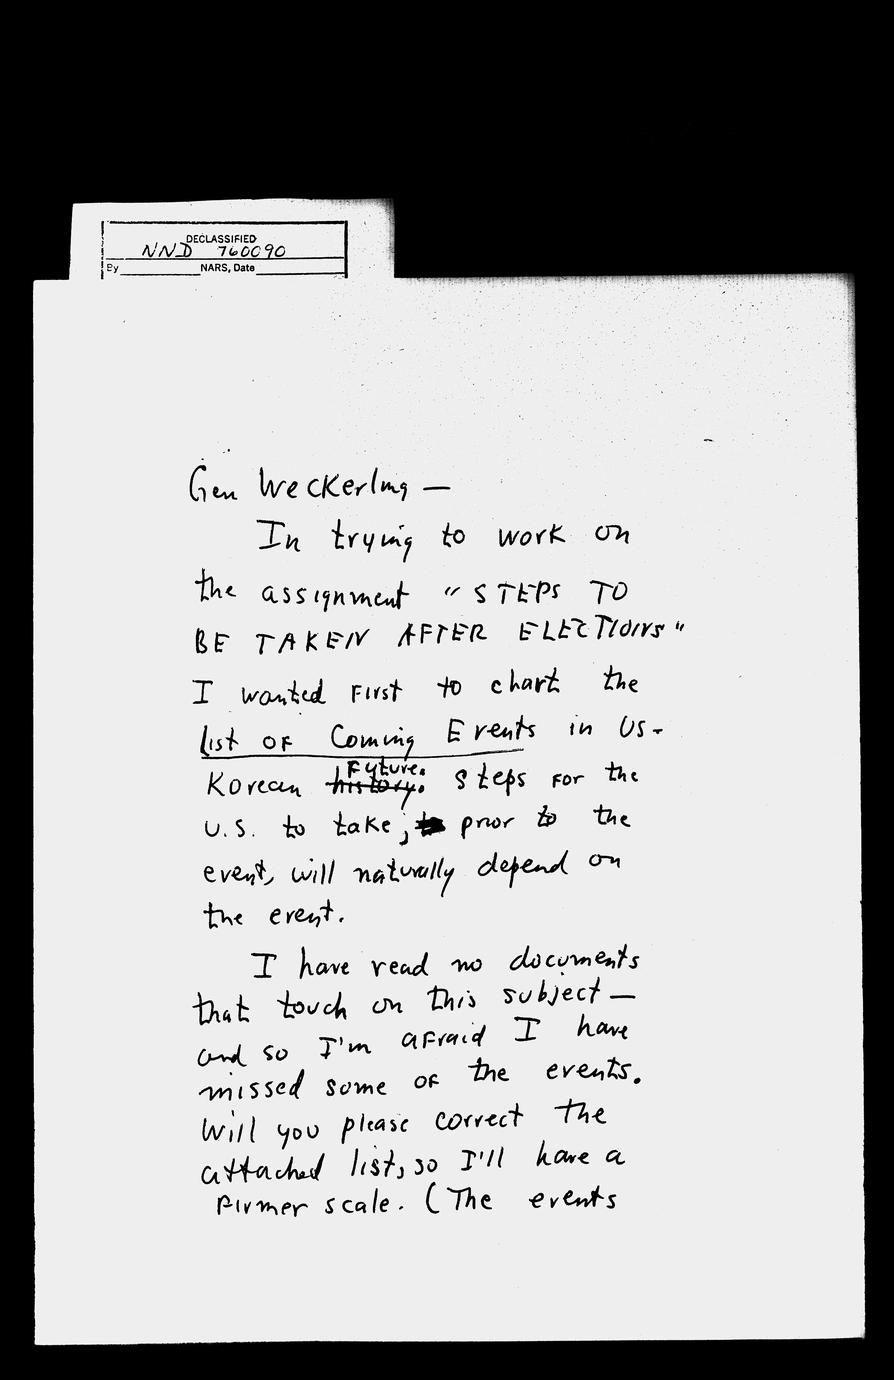 DECLASSIFIED
NND 760090
By NARS, Date
Gen Weckerling —
In trying to work on
the assignment "STEPS TO
BE TAKEN AFTER ELECTIONS"
I wanted first to chart the
list of Coming Events in US-
Future.
Korean history. Steps for the
U.S. to take, prior to the
event, will naturally depend on
the event.
I have read no documents
that touch on this subject —
and so I'm afraid I have
missed some of the events.
Will you please correct the
attached list, so I'll have a
firmer scale. (The events